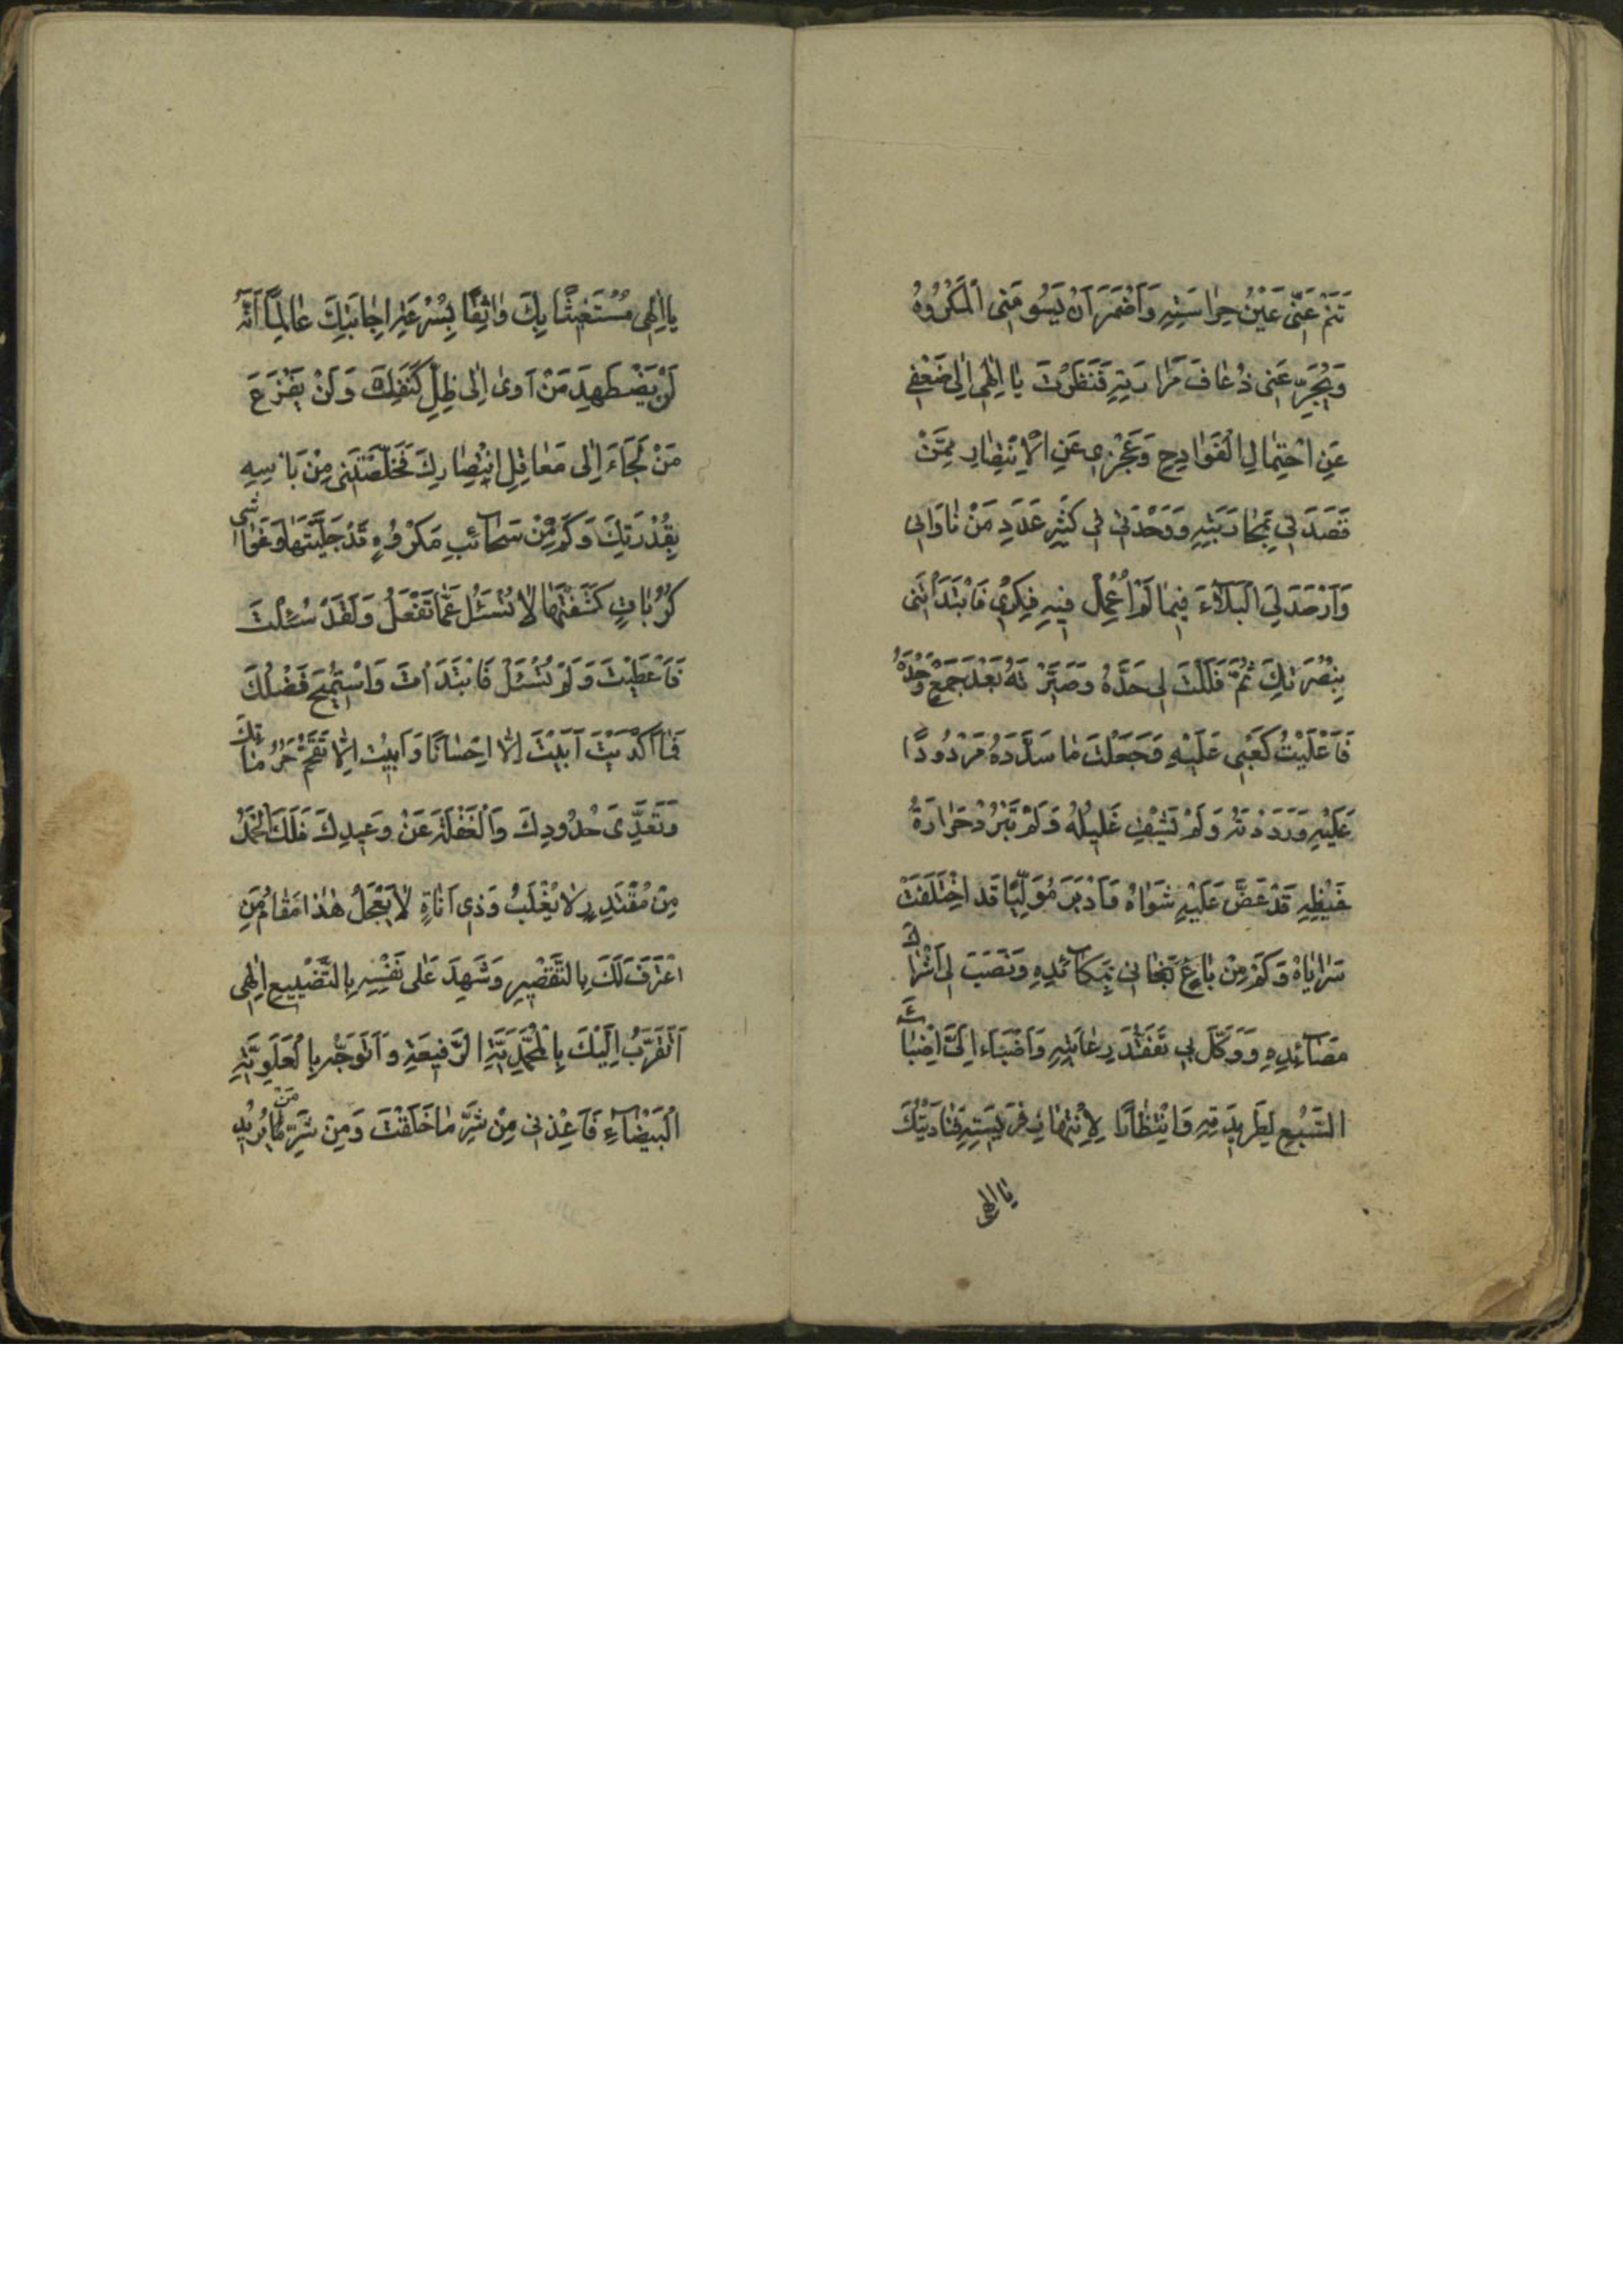 تَنَمْ عَنّى عَيْنُ حِراسَتِهِ وَاَضْمَرَ اَنْ يَسُومَنِى الْمَكْرُوهُ
وَيُجَرِّعَنِى ذُعافَ مَرارَتِهِ فَنَظَرْتَ يا اِلٰهى اِلى ضَعْفِى
عَنِ احْتِمالِ الْفَوادِحِ وَعَجْزِى عَنِ الْاِنْتِصارِ مِمَّنْ
قَصَدَنى بِمُحارَبَتِهِ وَوَحْدَتى فى كَثيرِ عَدَدِ مَنْ ناوانى
وَاَرْصَدَ لِىَ الْبَلآءَ فيما لَمْ اُعْمِلْ فيهِ فِكْرى فَابْتَدَاْتَنى
بِنُصْرَتِكَ ثُمَّ فَلَلْتَ لى حَدَّهُ وَصَيَّرْتَهُ بَعْدَ جَمْعٍ وَحْدَهُ
فَاَعْلَيْتُ كَعْبى عَلَيْهِ وَجَعَلْتَ ما سَدَّدَهُ مَرْدُودًا
عَلَيْهِ وَرَدَدْتَهُ وَلَمْ تَشْفِ غَليلُهُ وَلَمْ تَبْرُدْ حَرارَةُ
غَيْظِهِ قَدْ عَضَّ عَلَيْهِ شَواهُ وَاَدْبَرَ مُوَلِّيًا قَد اخْتَلَفَتْ
سَراياهُ وَكَمْ مِنْ باغٍ بَغانى بِمَكآئدِهِ وَنَصَبَ لى اَشْراكَ
مَصآئِدِهِ وَوَكَّلَ بى تَفَقُّدَ رِعايَتِهِ وَاَضْبَاءَ اِلَىَّ اِضْباءَ
السَّبُعِ لِطَريدَتِهِ وَانْتِظارًا لِاِنْتِهازِ فَريسَتِهِ فَنادَيْتُكَ
يا الهى
يا اِلٰهى مُسْتَغيثًا بِكَ واثِقًا بِسُرْعَةِ اِجابَتِكَ عالِمًا اَنَّهُ
لَنْ يَضْطَهِدَ مَنْ آوىٰ اِلى ظِلِّ كَنَفِكَ وَلَنْ يَفْزَعَ
مَنْ لَجَاءَ اِلى مَعاقِلِ انْتِصارِكَ فَخَلَّصْتَنى مِنْ بَاْسِهِ
بِقُدْرَتِكَ وَكَمْ مِنْ سَحآئبِ مَكْرُوهٍ قَدْ جَلَّيْتَها وَغَواشى
كُرُباتٍ كَشَفْتَها لا تُسْئَلُ عَمّا تَفْعَلُ وَلَقَدْ سُئِلْتَ
فَاَعْطَيْتَ وَلَمْ تُسْئَلْ فَابْتَدَاْتَ وَاسْتُميحَ فَضْلُكَ
فَما اَكْدَيْتَ اَبَيْتَ اِلّا اِحْسانًا وَاَبَيْتُ اِلّا تَقَحُّمَ حُرُماتِكَ
وَتَعَدِّىَ حُدُودِكَ وَالْغَفْلَةَ عَنْ وَعيدِكَ فَلَكَ الْحَمْدُ
مِنْ مُقْتَدِرٍ لا يُغْلَبُ وَذى اَناةٍ لا يَعْجَلُ هٰذا مَقامُ مَنِ
اعْتَرَفَ لَكَ بِالتَّقْصيرِ وَشَهِدَ عَلى نَفْسِهِ بِالتَّضْييعِ اِلٰهى
اَتَقَرَّبُ اِلَيْكَ بِالْمُحَمَّدِيَّةِ الرَّفيعَةِ وَاَتَوَجَّهُ بِالْعَلَوِيَّةِ
الْبَيْضآءِ فَاَعِذْنى مِنْ شَرِّ ما خَلَقْتَ وَمِنْ شَرِّ مَنْ يُريدُ